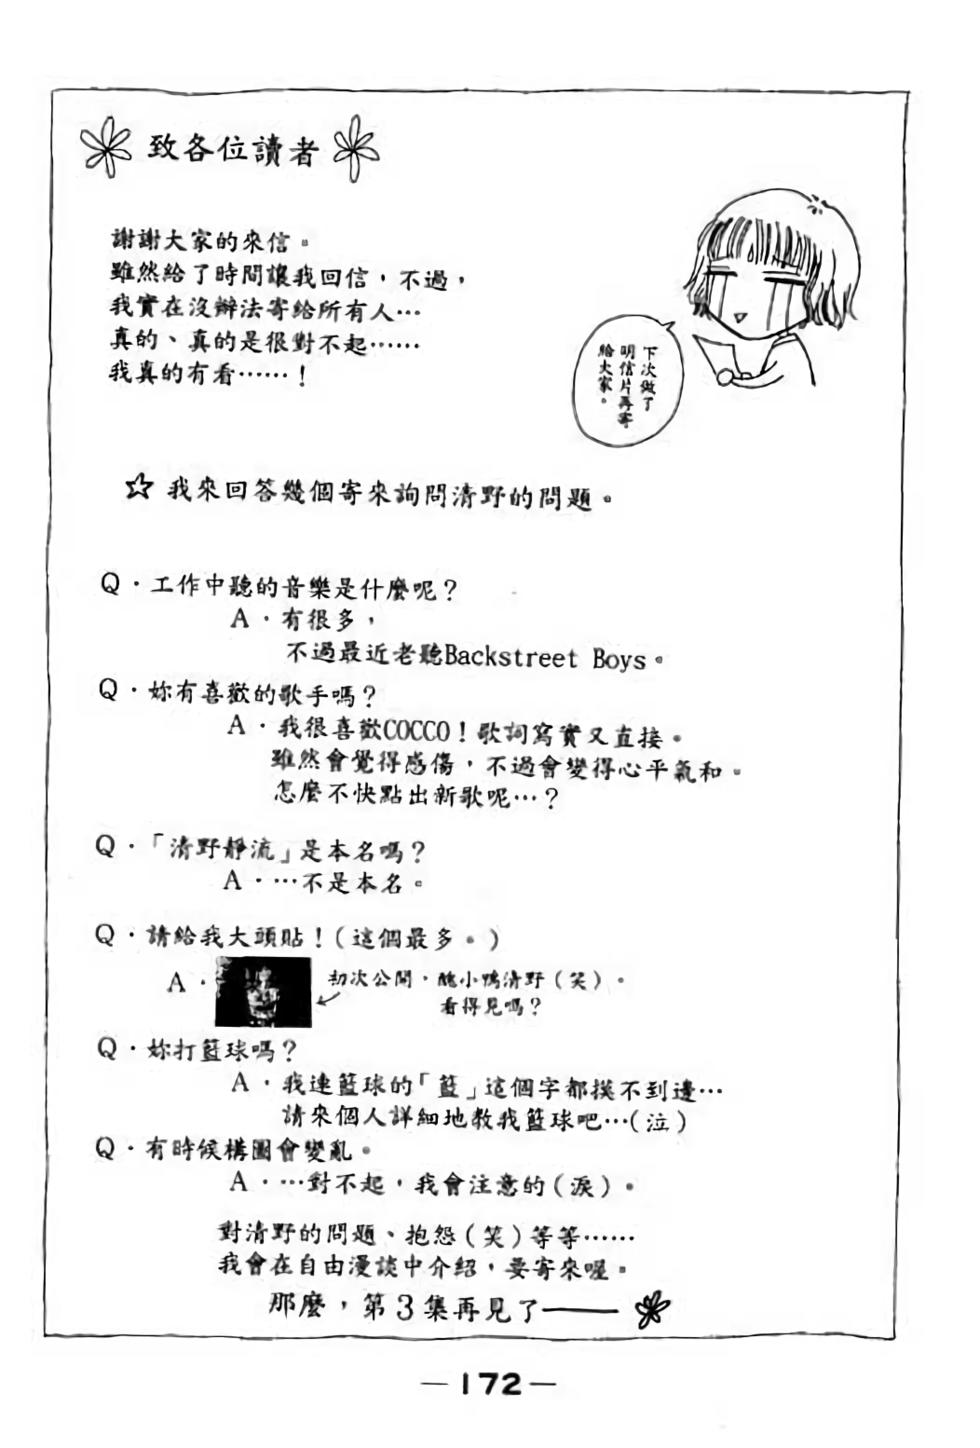 致各位讀者
謝謝大家的來信。
雖然給了時間讓我回信，不過，
我實在沒辦法寄給所有人…
真的、真的是很對不起……
我真的有看……！
下次做了
明信片再寄
給大家。
☆我來回答幾個寄來詢問清野的問題。
Q·工作中聽的音樂是什麼呢？
A·有很多，
不過最近老聽Backstreet Boys。
Q·妳有喜歡的歌手嗎？
A·我很喜歡COCCO！歌詞寫實又直接。
雖然會覺得感傷，不過會變得心平氣和。
怎麼不快點出新歌呢…？
Q·「清野靜流」是本名嗎？
A·…不是本名。
Q·請給我大頭貼！（這個最多。）
A·
初次公開，醜小鴨清野（笑）。
看得見嗎？
Q·妳打籃球嗎？
A·我連籃球的「籃」這個字都摸不到邊…
請來個人詳細地教我籃球吧…（泣）
Q·有時候構圖會變亂。
A·…對不起，我會注意的（淚）。
對清野的問題、抱怨（笑）等等……
我會在自由漫談中介紹，要寄來喔。
那麼，第3集再見了——
—172—